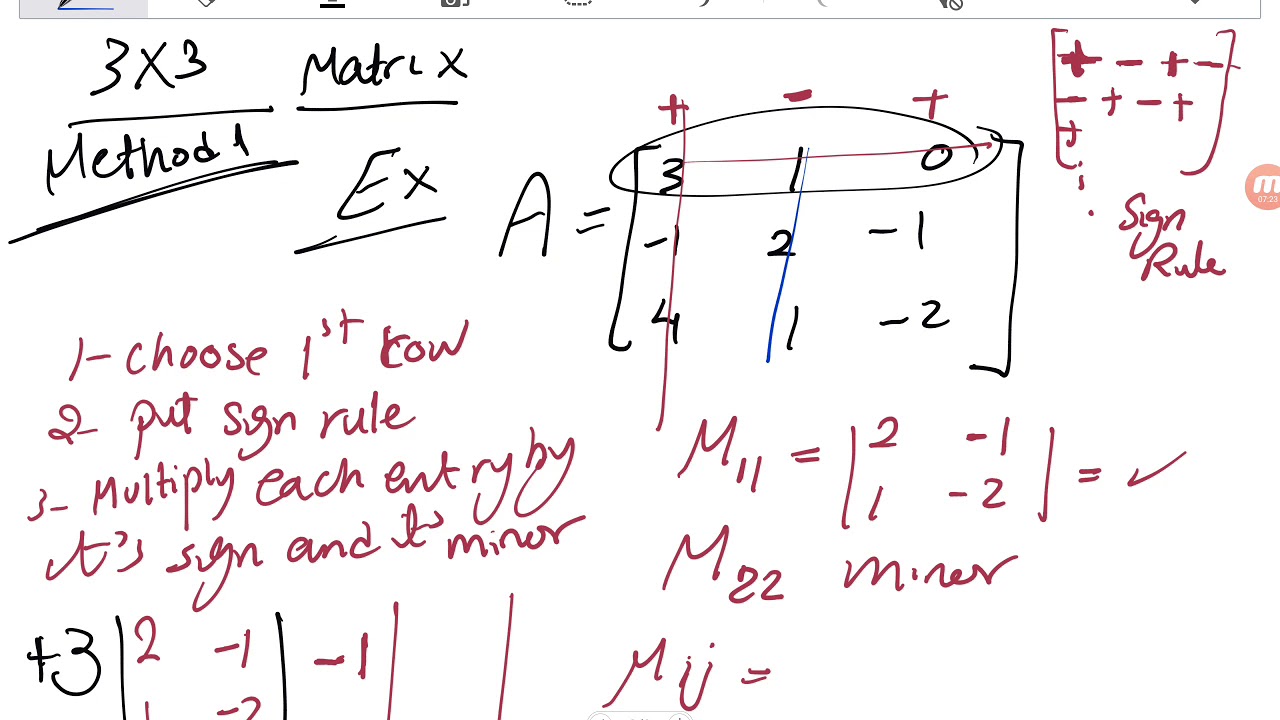 3X3 Matrix
Method 1
Ex
+ - +
A = [ 3 1 0
-1 2 -1
4 1 -2 ]
[ + - + -
- + - +
+ ]
Sign
Rule
07:23
1- choose 1st row
2- put sign rule
3- Multiply each entry by
it's sign and it's minor
M11 = | 2 -1
1 -2 | = ✓
M22 minor
+3 | 2 -1 | -1 | |
1 -2
Mij =